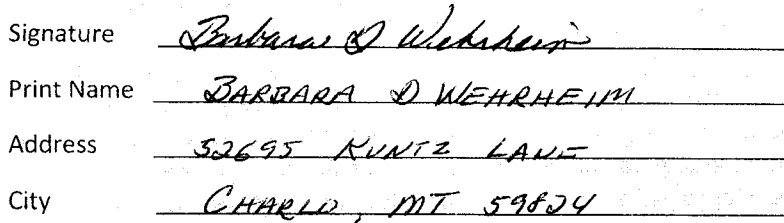 Signature Barbara D Wehrheim
Print Name BARBARA D WEHRHEIM
Address 52695 KUNTZ LANE
City CHARLO, MT 59824